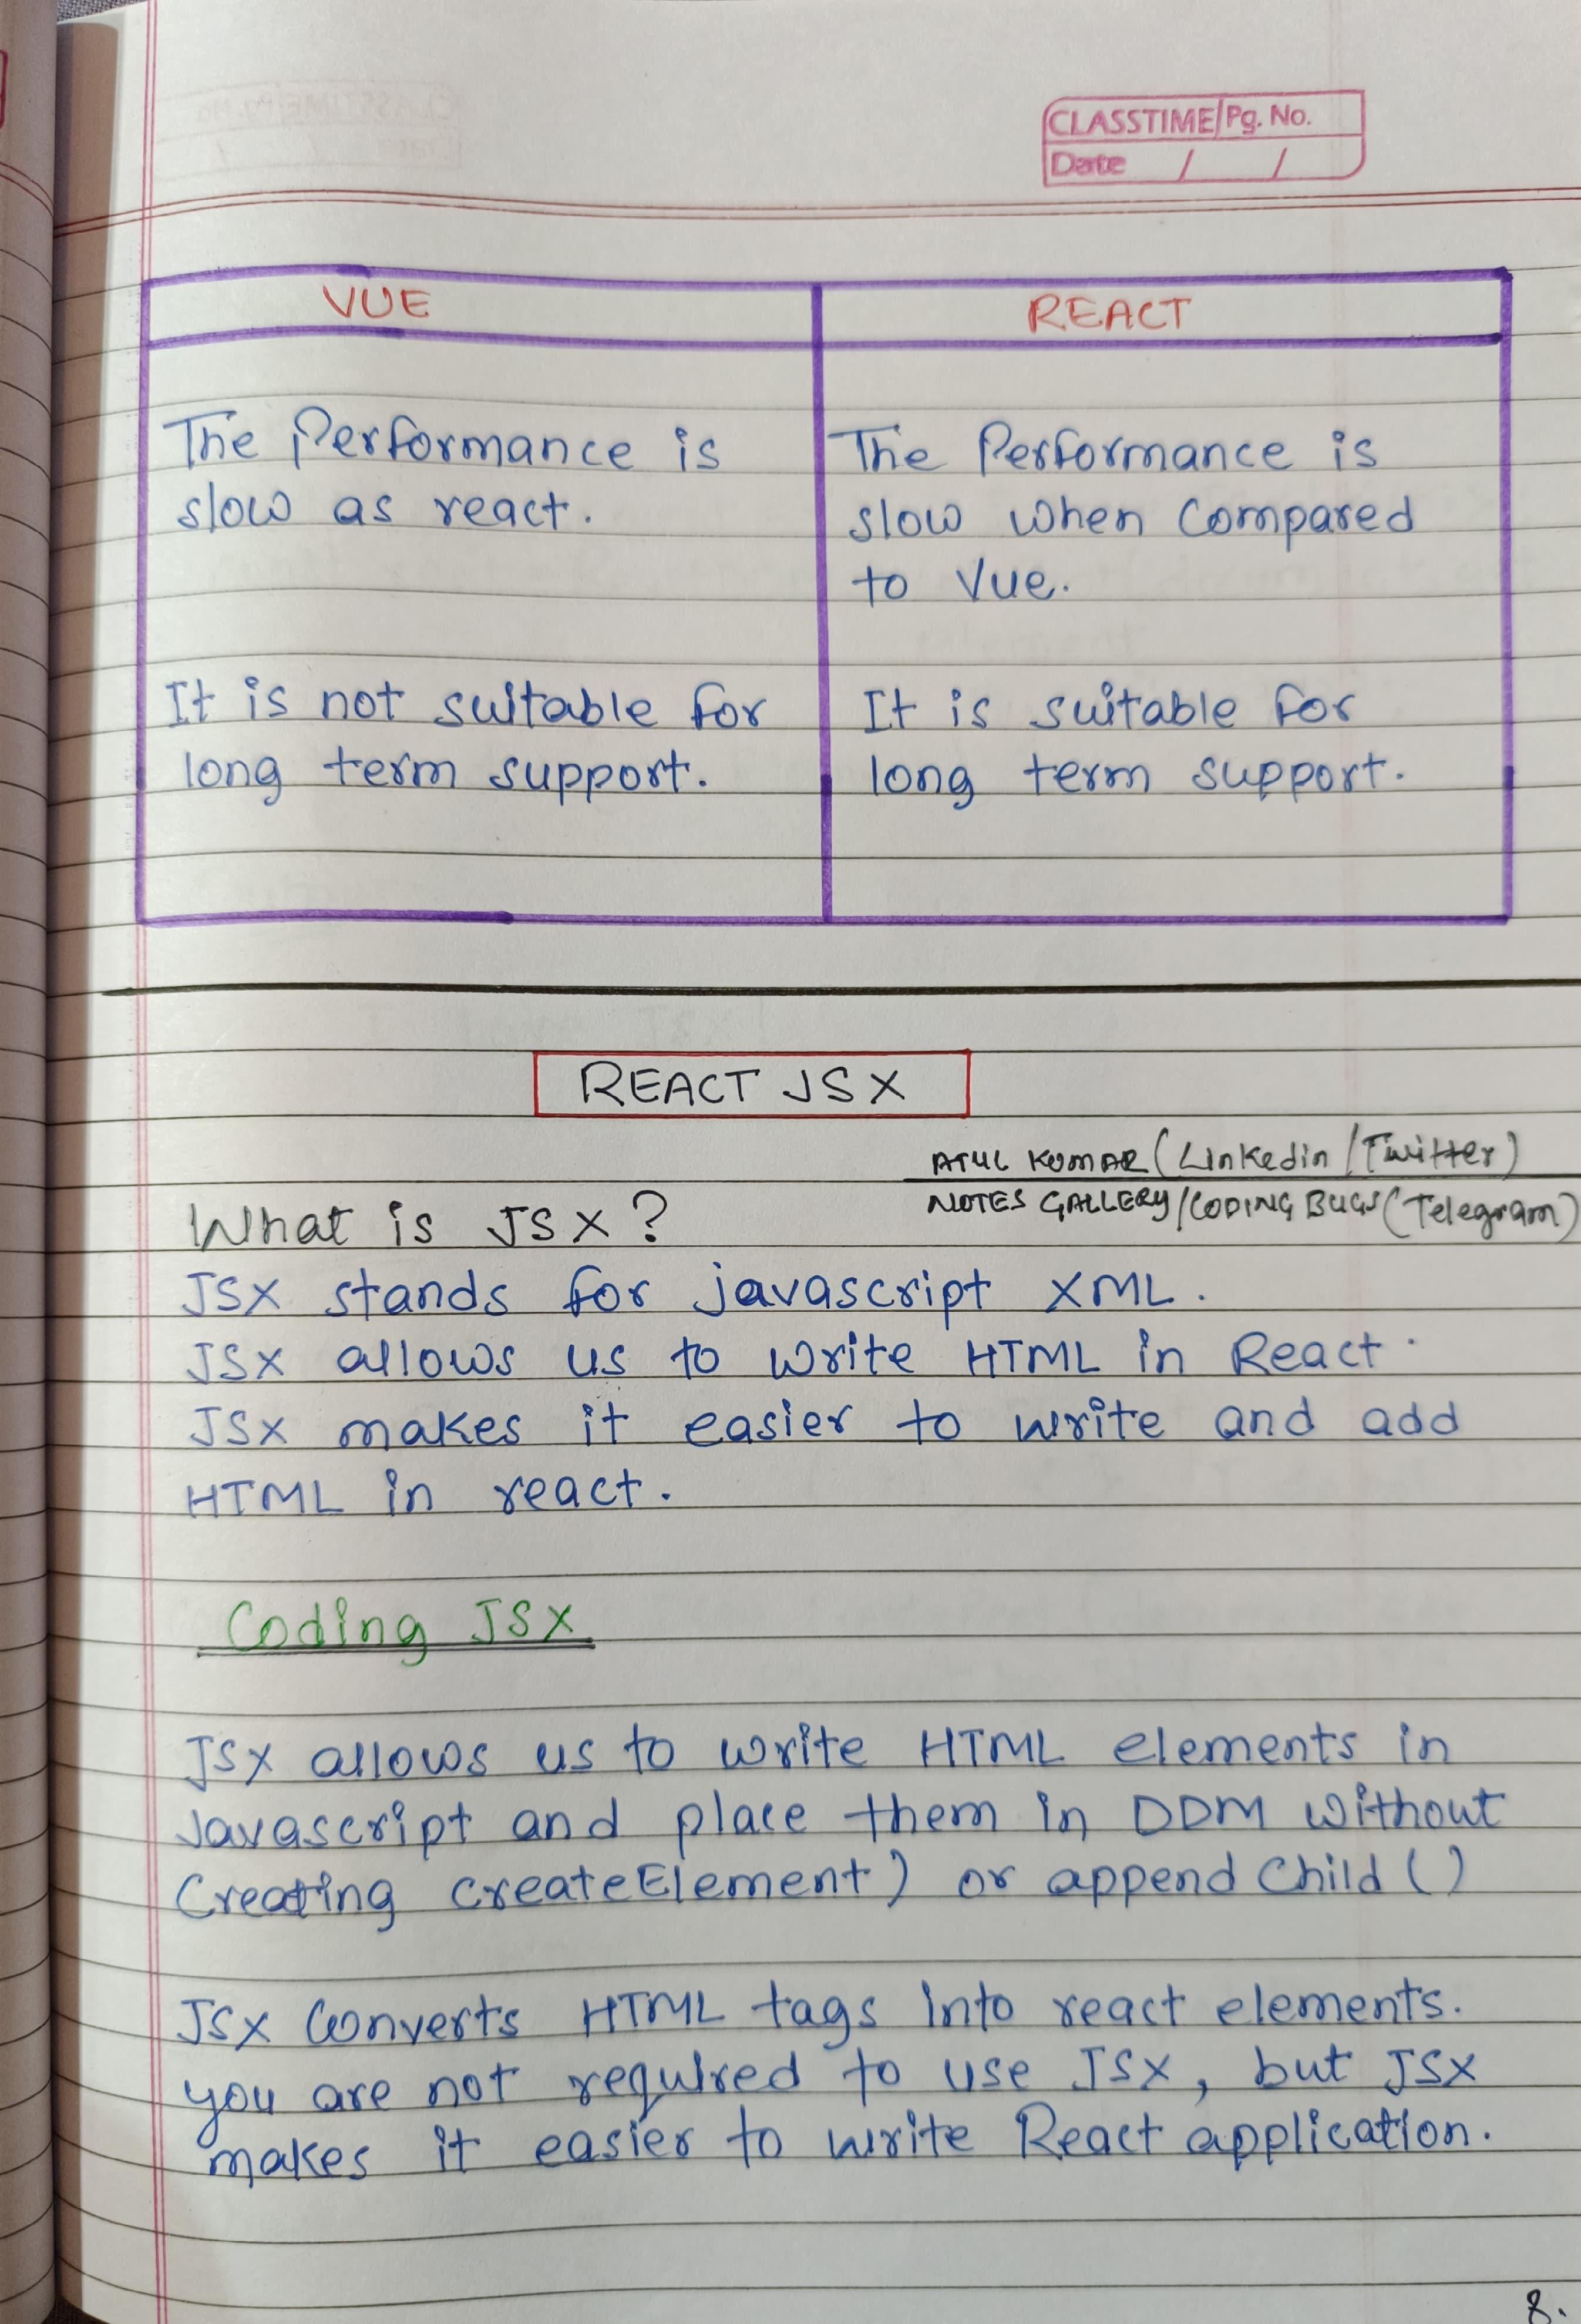 CLASSTIME Pg. No.
Date / /
VUE
REACT
The Performance is
slow as react.
The Performance is
slow when Compared
to Vue.
It is not suitable for
long term support.
It is suitable for
long term support.
REACT JSX
ATUL KUMAR (Linkedin / Twitter)
NOTES GALLERY / CODING BUGS (Telegram)
What is JSX?
JSX stands for javascript XML.
JSX allows us to write HTML in React.
JSX makes it easier to write and add
HTML in react.
Coding JSX
JSX allows us to write HTML elements in
Javascript and place them in DOM without
Creating createElement) or appendChild()
JSX Converts HTML tags into react elements.
you are not required to use JSX, but JSX
makes it easier to write React application.
8.